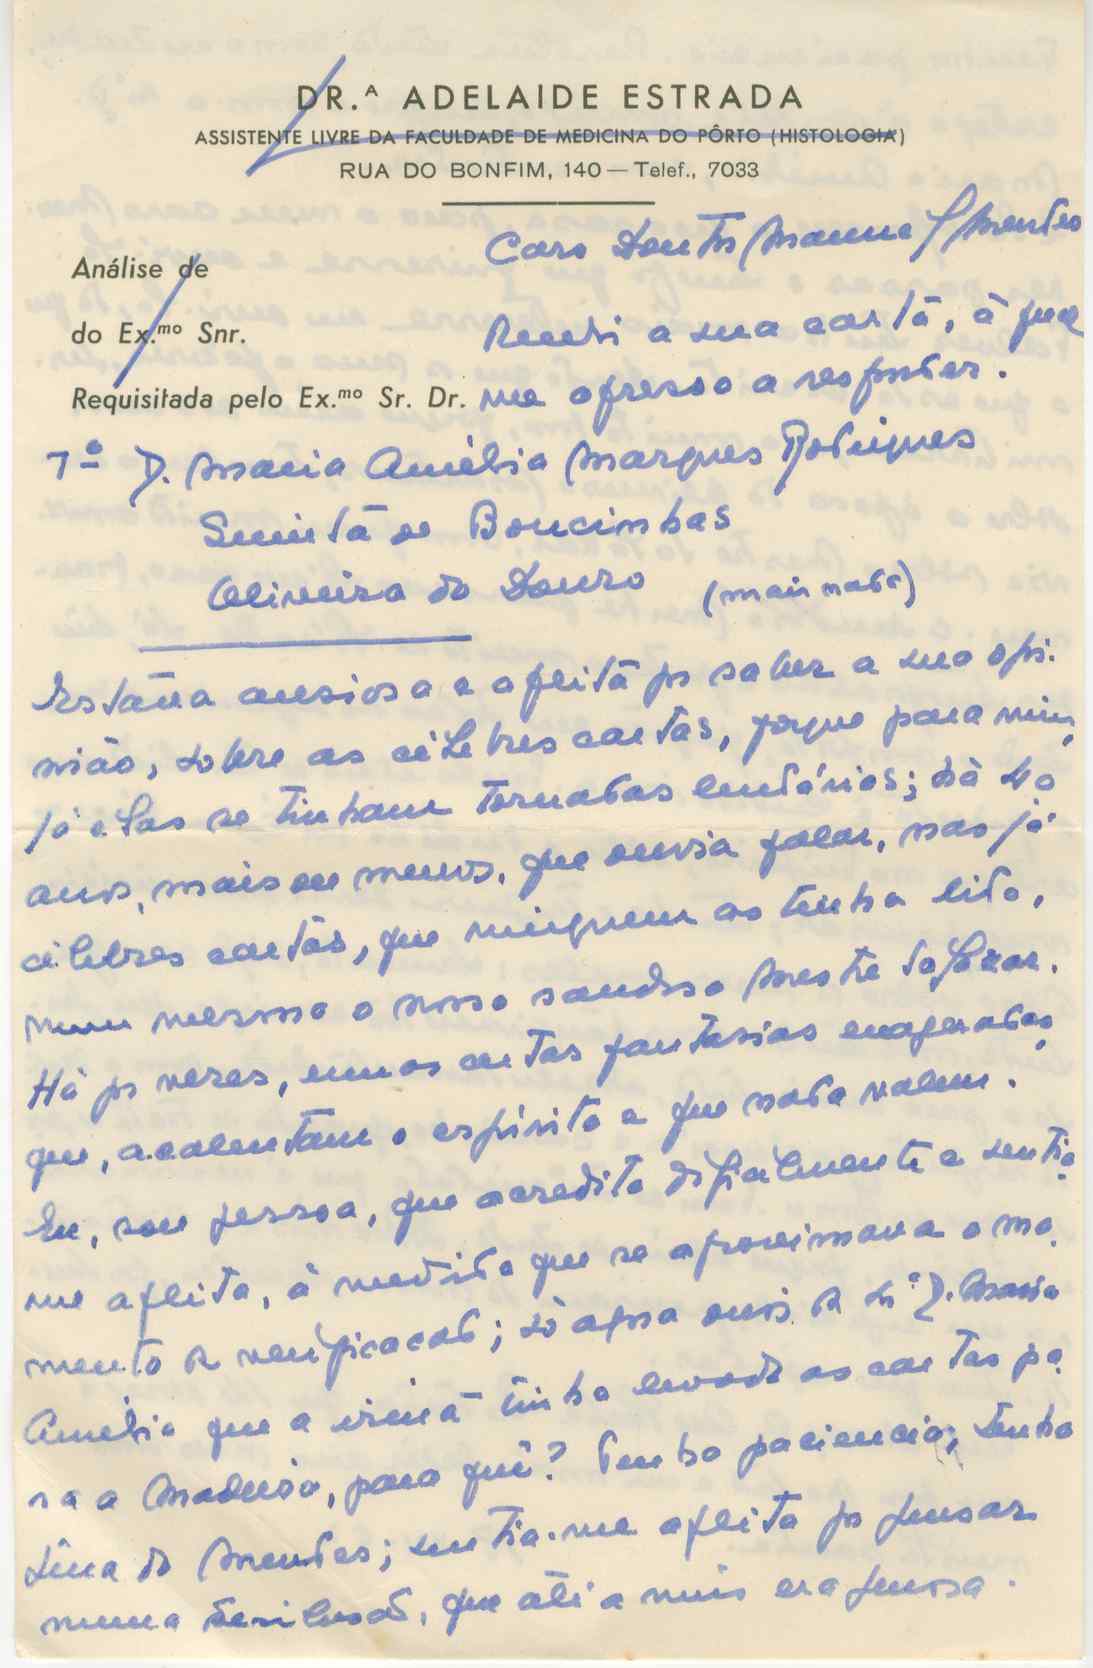 DR.ª ADELAIDE ESTRADA
ASSISTENTE LIVRE DA FACULDADE DE MEDICINA DO PÔRTO (HISTOLOGIA)
RUA DO BONFIM, 140 — Telef., 7033
Caro Doutor Manuel Mendes
Análise de
do Ex.mo Snr.
Recebi a sua carta, à qual
Requisitada pelo Ex.mo Sr. Dr.
me apresso a responder.
1º D. Maria Amélia Marques Rodrigues
Quinta de Boucinhas
Oliveira do Douro (mais nada)
Estava ansiosa e aflita por saber a sua opi-
nião, sobre as célebres cartas, porque para mim,
já elas se tinham tornadas lendárias; há 20
anos, mais ou menos, que ouvia falar, nas já
célebres cartas, que ninguem as tinha lido,
nem mesmo o nosso saudoso Mestre
Há por vezes, umas certas fantasias exageradas,
que, acalentam o espírito e que nada valem.
Eu, sou pessoa, que acredito dificilmente e sentia-
me aflita, à medida que se aproximava o mo-
mento da verificacão; só agora ouvi à Sr.ª D. Maria
Amélia que a irmã tinha levado as cartas pa-
ra a Madeira, para quê? Tenho paciencia; tenho
pena do Mendes; sentia-me aflita por pensar
numa desilusão, que até a mim era penosa.